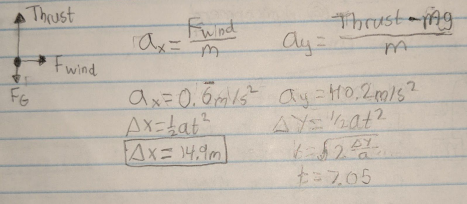 Thrust
F_wind
F_G
a_x = F_wind / m
a_y = Thrust - mg / m
a_x = 0.6 m/s²
a_y = 10.2 m/s²
Δx = ½at²
Δx = 14.9m
ΔY = ½at²
t = √2 ΔY/a
t = 7.05